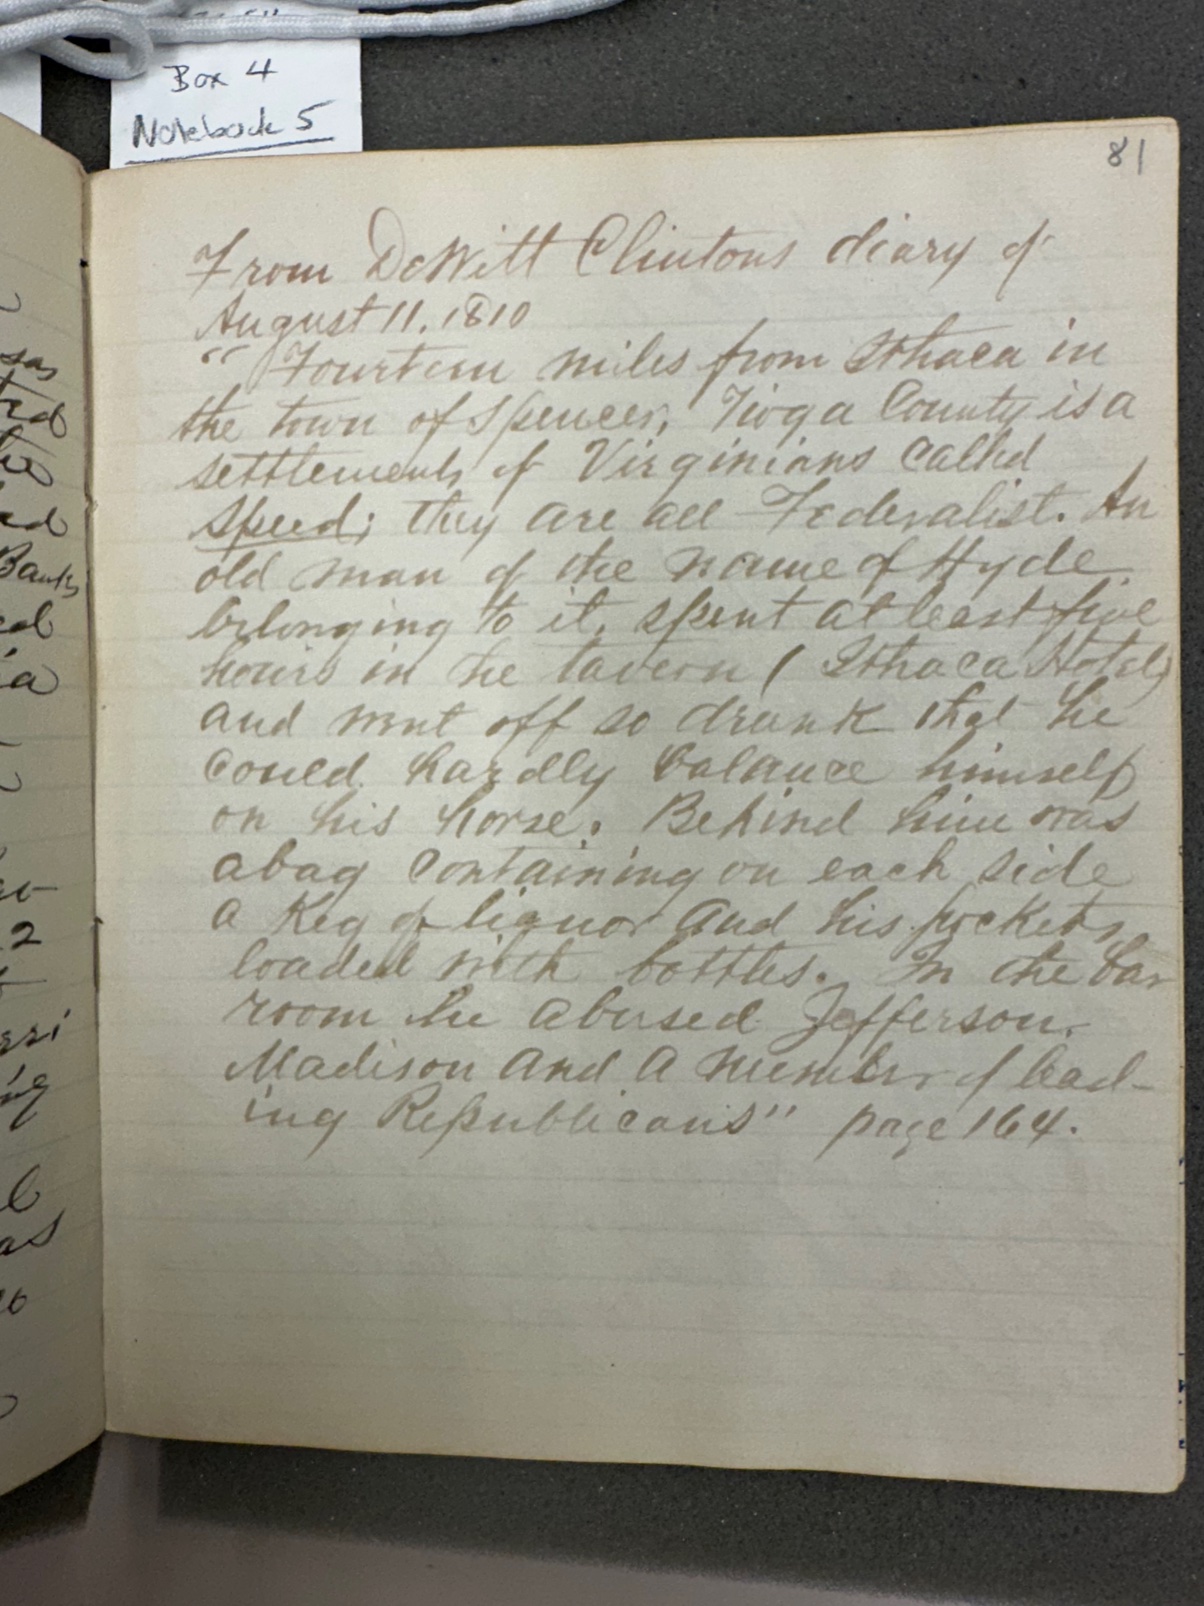 Box 4
Notebook 5
81
From DeWitt Clintons diary of
August 11, 1810
"Fourteen miles from Ithaca in
the town of Spencer, Tioga County is a
settlement of Virginians called
Speed; they are all Federalist. An
old man of the name of Hyde
belonging to it, spent at least five
hours in the tavern (Ithaca Hotel)
and went off so drunk that he
could hardly balance himself
on his horse. Behind him was
a bag containing on each side
a Keg of liquor and his pockets
loaded with bottles. In the bar
room he abused Jefferson,
Madison and a number of lead-
ing Republicans" page 164.
Bank